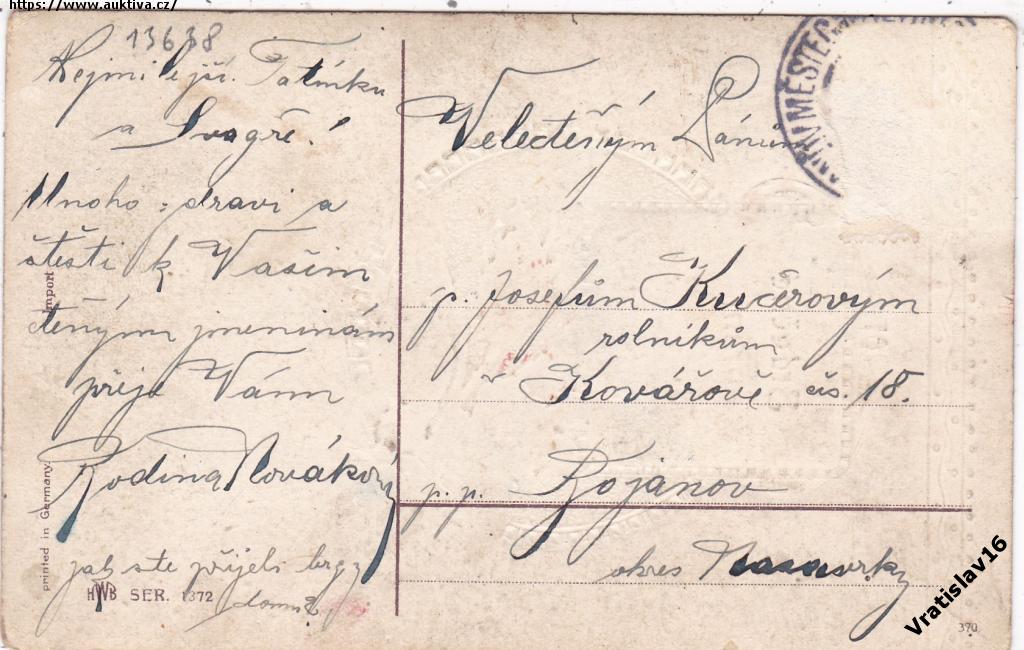 https://www.auktiva.cz/
13638
Nejmilejší Tatínku
a Švagře!
Mnoho zdraví a
štěstí k Vašim
cteným jmeninám
přeje Vám
Rodina Novákový
jak ste přijeli brzy
domu
HWB SER. 1372
printed in Germany.
Import
MĚSTEC
Velectěným Pánům
p. Josefům Kučerovým
rolníkům
v Kovářově čís. 18.
p. p. Bojanov
okres Nasavrky
370
Vratislav16